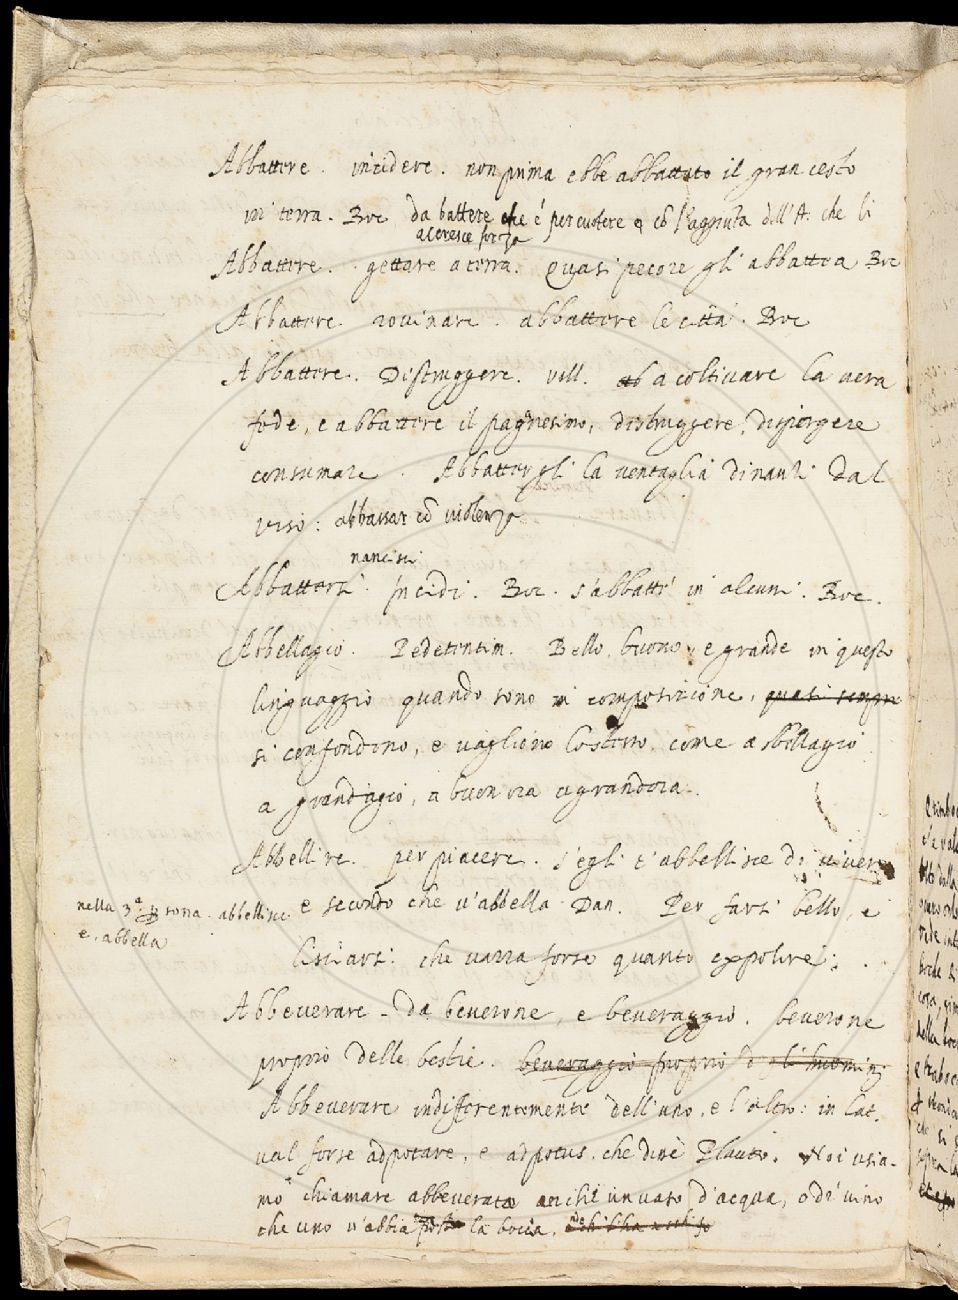 Abbattere. incidere. non prima ebbe abbattuto il gran cesto
in terra. Boc da battere che è percuotere e cõ l'aggiunta dell'A. che li
acresce forza
Abbattere. gettare a terra. Quasi pecore gli abbattea Boc
Abbattere rovinare. abbattere le città. Boc
Abbattere. Distruggere. vill. a coltivare la vera
fede, e abbattere il paganesimo, distruggere, dispergere
consumare. Abbattergli la ventaglia dinanzi dal
viso: abbassar cõ violenza
nancisci
Abbattersi. Incidi. Boc. s'abbattè in alcuni. Boc.
Abbellagio. Pedetentim. Bello, buono, e grande in questo
linguaggio quando sono in composizione, quasi sempre
si confondono, e vagliono lo stesso, come a bellagio
a grand'agio, a buon'ora a grandora.
Abbellire. per piacere. s'egli t'abbellisce di
nella 3.ª persona. abbellisce
e. abbella
e secondo che v'abbella. Dan. Per farsi bello, e
lisciarsi: che varra forse quanto expolire:
Abbeverare - da beverone, e beveraggio. beverone
proprio delle bestie. beveraggio proprio d gli huomini
Abbeverare indifferentemente dell'uno, e l'altro: in lat.
val forse adpotare, e adpotus, che disse Plauto. Noi usia-
mo chiamare abbeverato anche un vaso d'acqua, o di vino
che uno v'abbia posto la bocca.